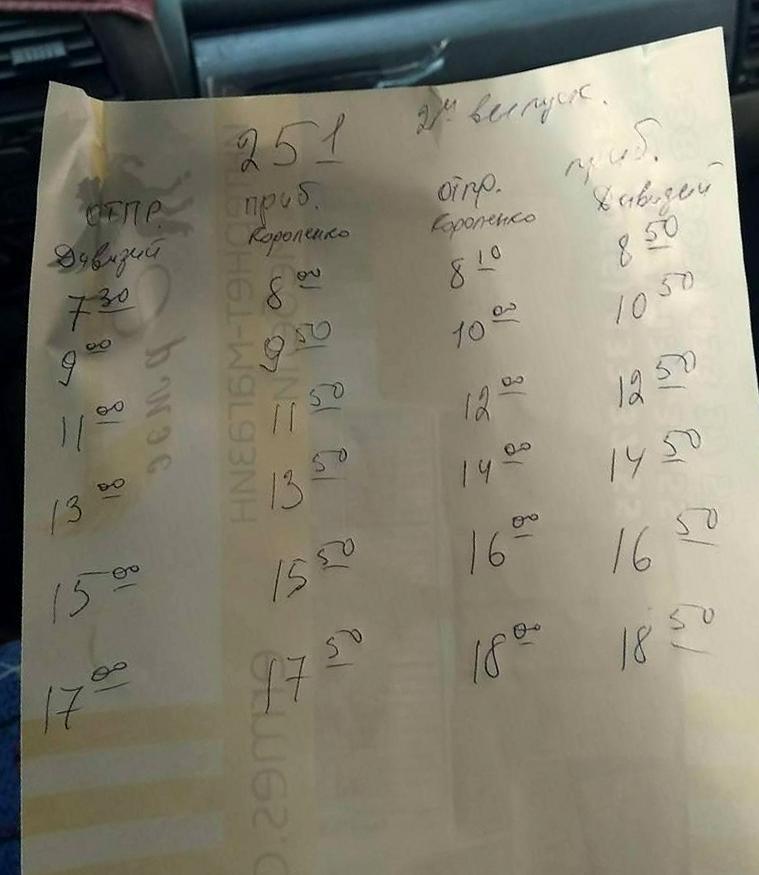 251 2й выпуск.
ОТПР. приб. отпр. приб.
Дивизий Короленко Короленко Дивизий
7 30 8 00 8 10 8 50
9 00 9 50 10 00 10 50
11 00 11 50 12 00 12 50
13 00 13 50 14 00 14 50
15 00 15 50 16 00 16 50
17 00 17 50 18 00 18 50